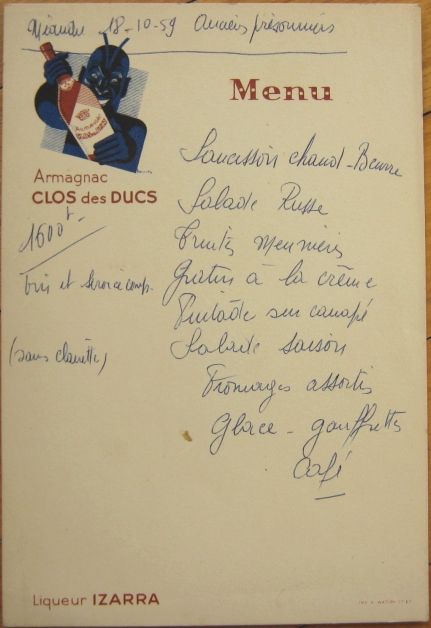 18-10-59 Anciens prisonniers
Menu
Armagnac
CLOS des DUCS
Saucisson chaud - Beurre
Salade Russe
Truites Meunières
Gratin à la crème
Pintade sur canapé
Salade saison
Fromages assortis
Glace - gauffrettes
Café
1600f -
Vin et Service comp.
(sans clairette)
Liqueur IZARRA